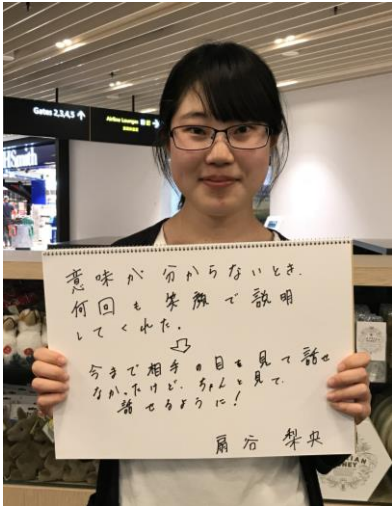 Gates 2,3,4,5 ↑
Airline Lounges
HSmith
意味が分からないとき、
何回も笑顔で説明
してくれた。
⇩
今まで相手の目を見て話せ
なかったけど、ちゃんと見て、
話せるように!
扇谷 梨央